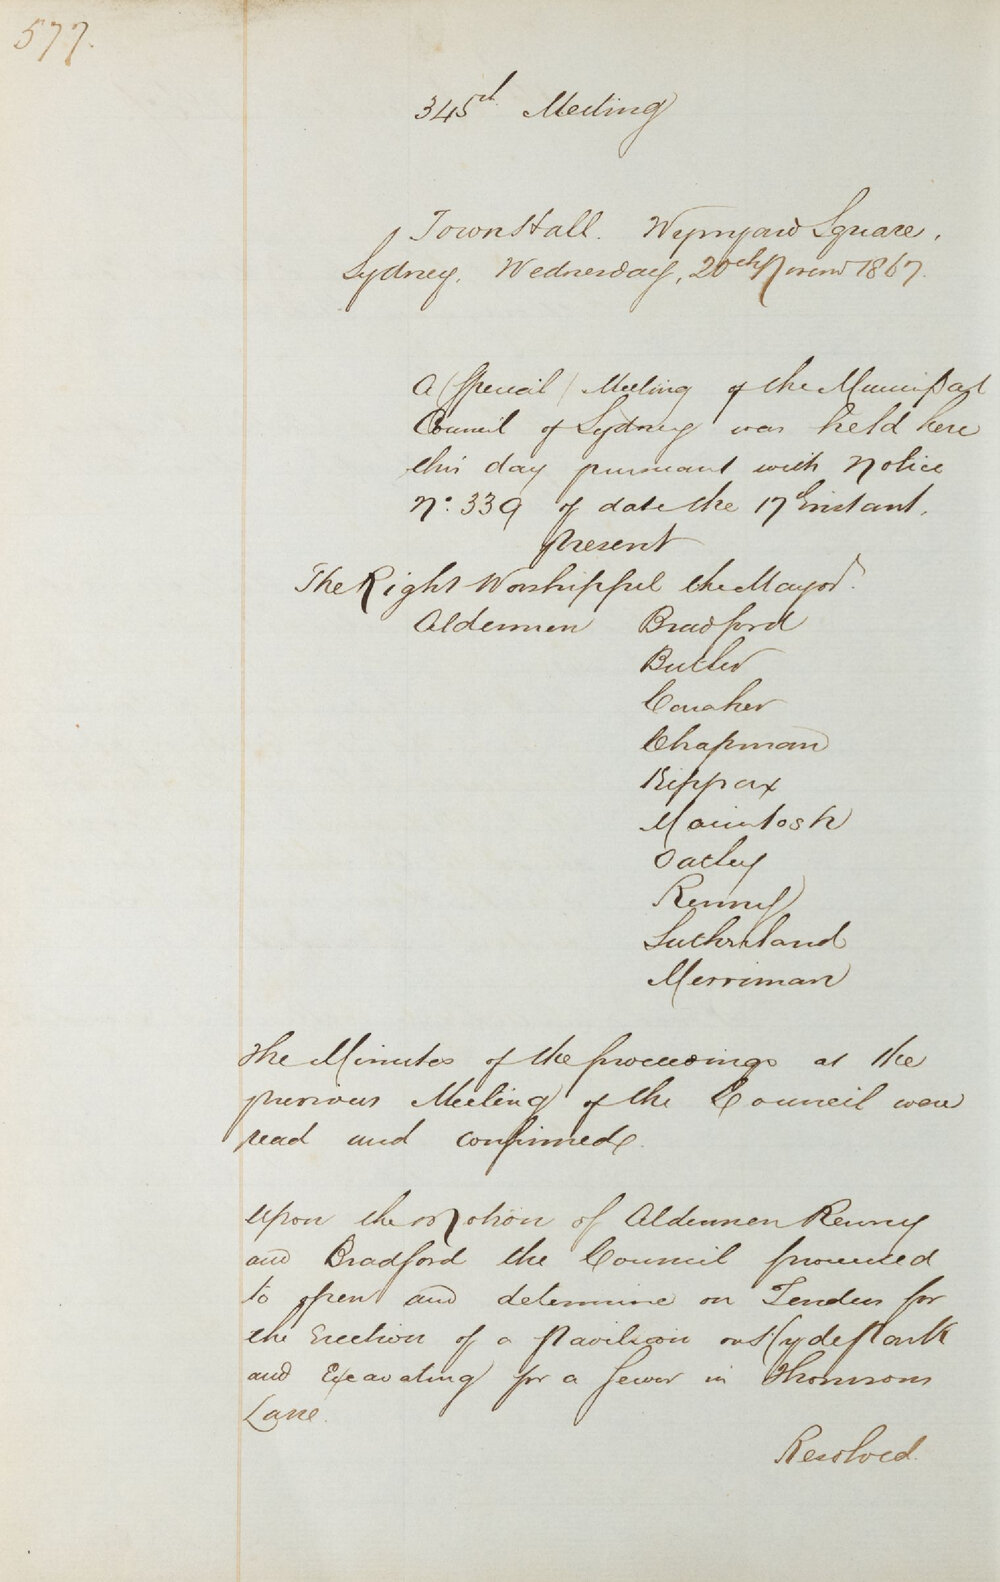 577.
345rd Meeting
Town Hall. Wynyard Square,
Sydney, Wednesday, 20th Novem 1867.
A (Special) Meeting of the Municipal
Council of Sydney was held here
this day pursuant with Notice
No: 339 of date the 17th instant.
Present
The Right Worshipful the Mayor.
Aldermen Bradford
Butler
Caraher
Chapman
Kippax
Macintosh
Oatley
Renny
Sutherland
Merriman
The Minutes of the proceedings at the
previous Meeting of the Council were
read and confirmed.
Upon the Motion of Aldermen Renny
and Bradford the Council proceeded
to open and determine on Tenders for
the Erection of a Pavilion on Hyde Park
and Excavating for a Sewer in Thomsons
Lane.
Resolved.